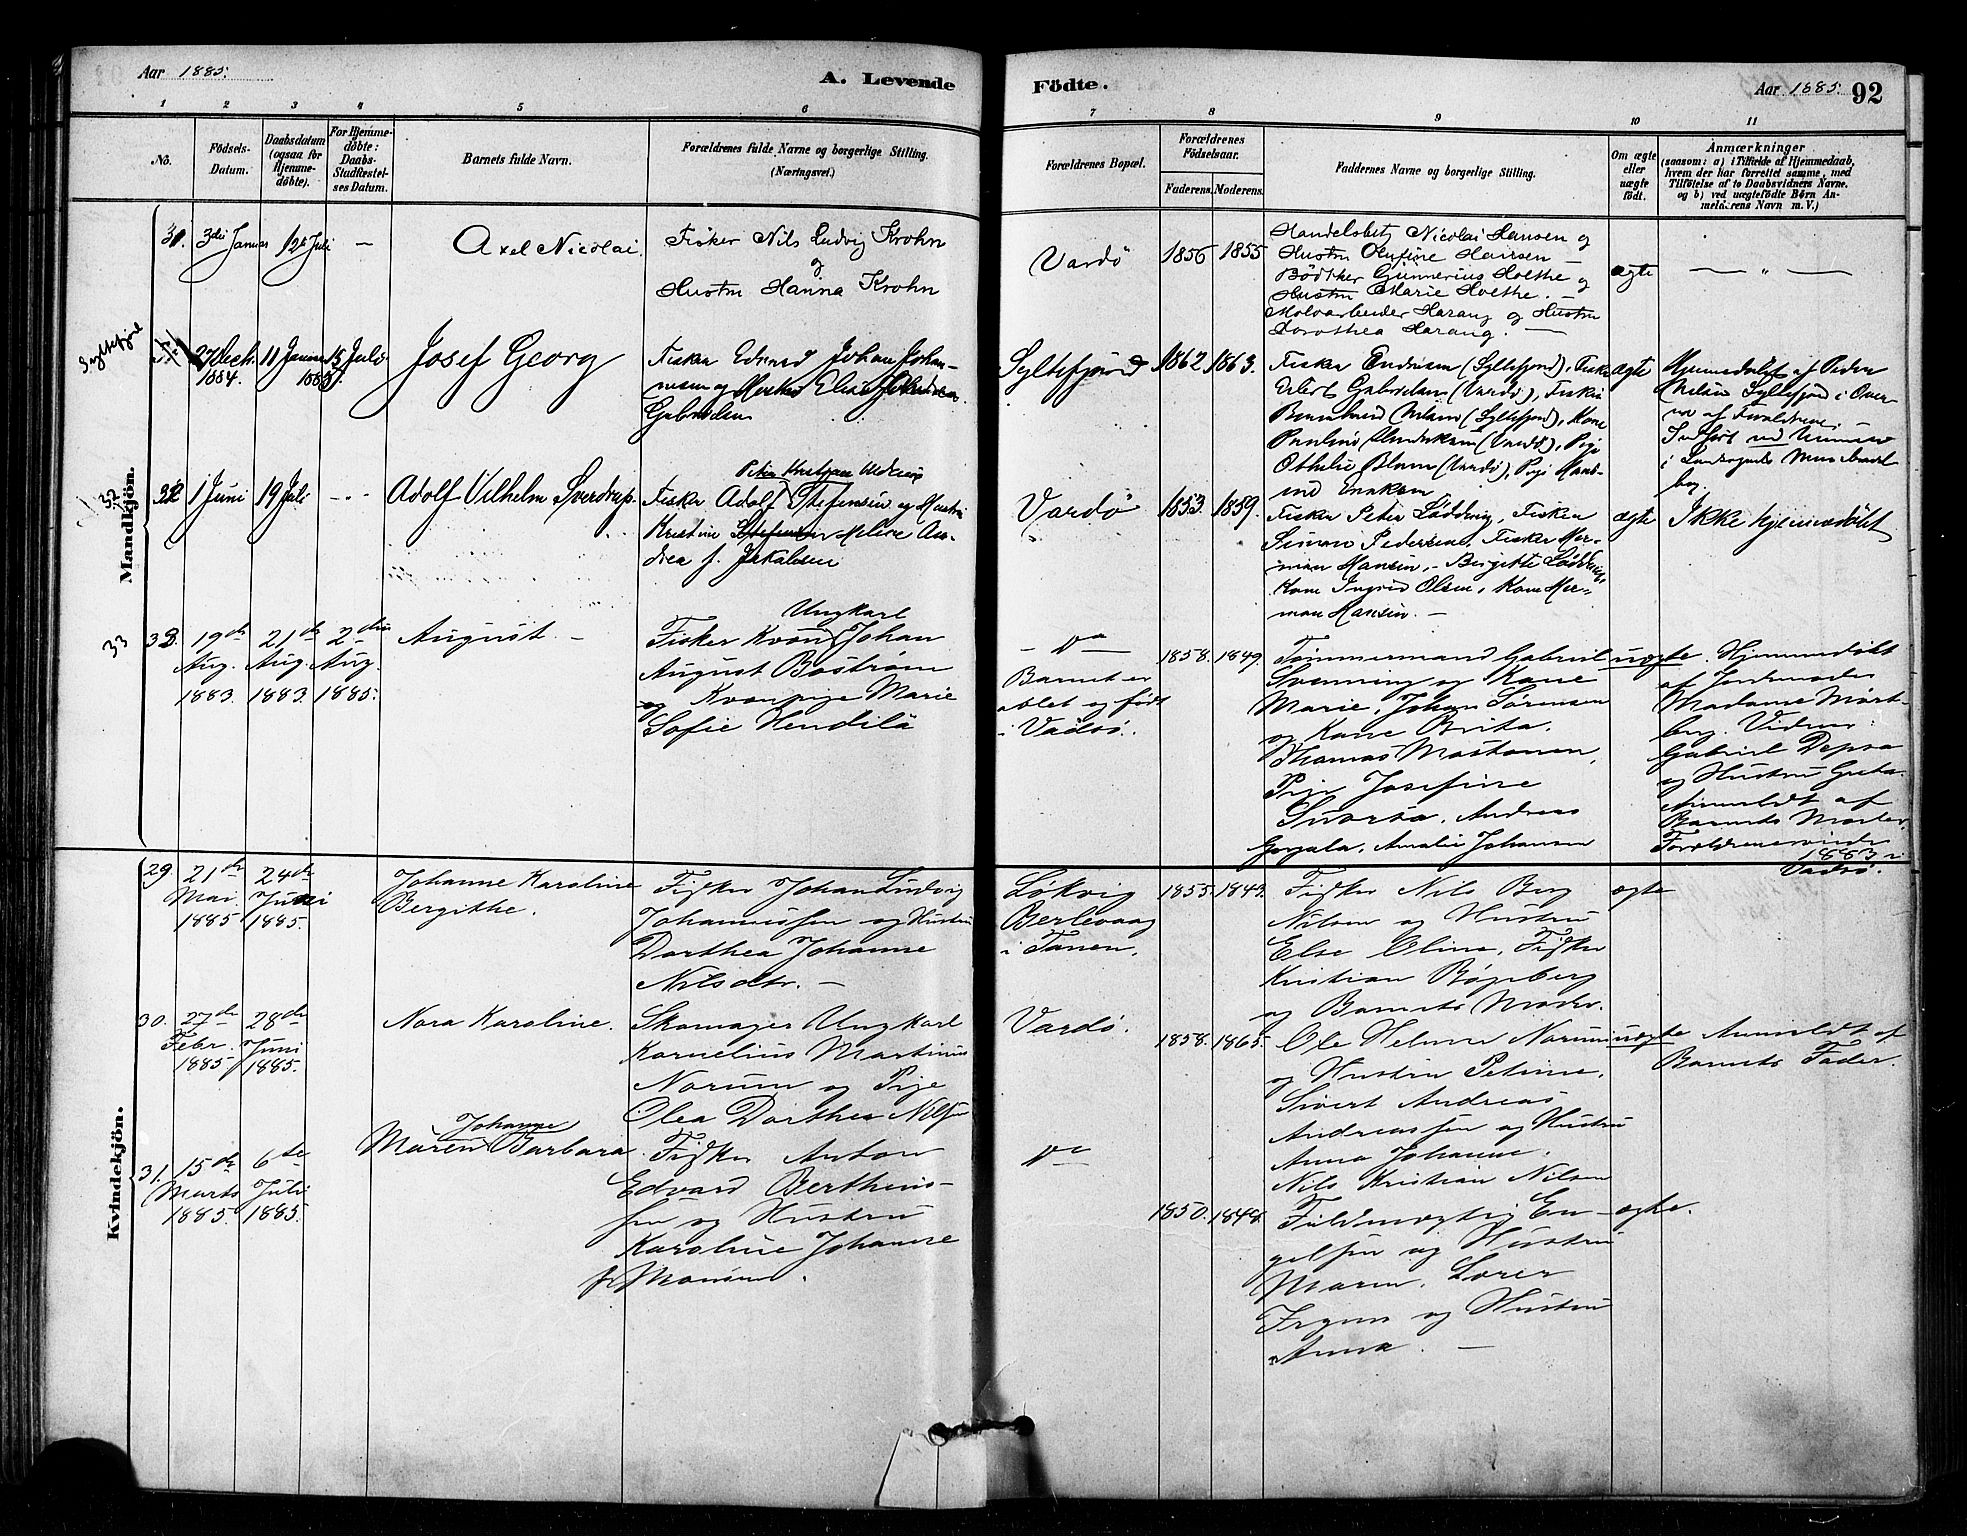 Aar 1885.
A. Levende
Födte.
Aar 1885. 92
1 2 3 4 5 6 7 8 9 10 11
No.
Födsels-
Datum.
Daabsdatum
(ogsaa for
Hjemme-
døbte).
For Hjemme-
døbte:
Daabs-
Stadfæstel-
ses Datum.
Barnets fulde Navn.
Forældrenes fulde Navne og borgerlige Stilling.
(Næringsvei.)
Forældrenes Bopæl.
Forældrenes
Födselsaar.
Faderens. Moderens.
Faddernes Navne og borgerlige Stilling.
Om ægte
eller
uægte
født.
Anmærkninger
(saasom: a) i Tilfælde af Hjemmedaab,
hvem der har forrettet samme, med
Tilföielse af to Daabsvidners Navne,
og b) ved uægtefödte Børn An-
melderens Navn m. V.)
Mandkjön.
31. 3die Januar 12te Juli —
Axel Nicolai.
Fisker Nils Ludvig Krohn
og
Hustru Hanna Krohn
Vardö
1856 1855
Handelsbetj Nicolai Hansen og
Hustru Olufine Hansen —
Bödtker Gunnerius Holthe og
Hustru Marie Holthe. —
Moloarbeider Harang og Hustru
Dorothea Harang. —
ægte
— " —
Syltefjord
27 Decb. 11 Januar 15 Juli
1884. 1885.
Josef Georg
Fisker Edvard Johan Johan-
nesen og
Gabrielsen
Syltefjord
1862 1863.
Fisker Endresen (Syltefjord), Fisker
Gabrielsen (Vardö), Fisker
(Syltefjord), Kone
(Vardö), Pige
Othelie (Vardö), Pige
ægte
Hjemmedøbt af Peder
Nilsen Syltefjord i Over-
vær af Forældrene.
Indført ved Nummer
i Landsognets Ministerial
bog.
32 1 Juni 19 Juli - - -
Adolf Vilhelm Sverdrup.
Fisker Adolf Stefensen og Hustru
Kristine Meline An-
drea f. Jakobsen
Vardö
1853. 1859.
Fisker Peter Lødding, Fisker
Simon Pedersen, Fisker Her-
man Hansen, - Birgitte Lødding,
Kone Ingrid Olsen, Kone Her-
man Hansen. —
ægte
Ikke hjemmedøbt
33
19de 21de 2den
Aug. Aug. Aug.
1883 1883. 1885.
August. —
Ungkarl
Fisker Kvæn Johan
August Boström
og Kvænpige Marie
Sofie Hendilä
— do —
Barnet er
avlet og født
i Vadsö.
1858. 1849.
Tømmermand Gabriel
Svenning og Kone
Marie, Johan Sörensen
og Kone Brita.
Thomas Mostonen,
Pige Josefine
Andreas
Amalie Johansen
uægte.
Hjemmedöbt
af Jordemoder
Madame Mort-
berg. Vidner:
Gabriel
og Hustru Greta.
Anmeldt af
Barnets Moder.
1883 i
Vadsö.
Kvindekjön.
29. 21de 24de
Mai. Juni
1885 1885.
Johanne Karoline
Bergithe.
Fisker Johan Ludvig
Johannessen og Hustru
Dorthea Johanne
Nilsdtr. —
Løkvig
Berlevaag
i Tanen.
1855. 1843.
Fisker Nils Berg
Nilsen og Hustru
Else Oline, Fisker
Kristian
og Barnets Moder.
ægte
30. 27de 28de
Febr. Juni
1885 1885.
Nora Karoline.
Skomager Ungkarl
Kornelius Martinus
Norum og Pige
Olea Dorthea Nilsen
Vardö.
1858. 1865.
Ole Helmer Norum
og Hustru Petrine.
Sivert Andreas
Andreassen og Hustru
Anna Johanne.
Nils Kristian Nilsen
uægte
Anmeldt af
Barnets Fader.
31. 15de 6te
Marts Juli
1885. 1885.
Johanne
Maren Barbara.
Fisker Anton
Edvard Berthius-
sen og Hustru
Karoline Johanne
f. Monsen.
do
1850. 1848.
Fuldmægtig En-
gelsen og Hustru
Maren. Lærer
og Hustru
Anna. —
ægte.